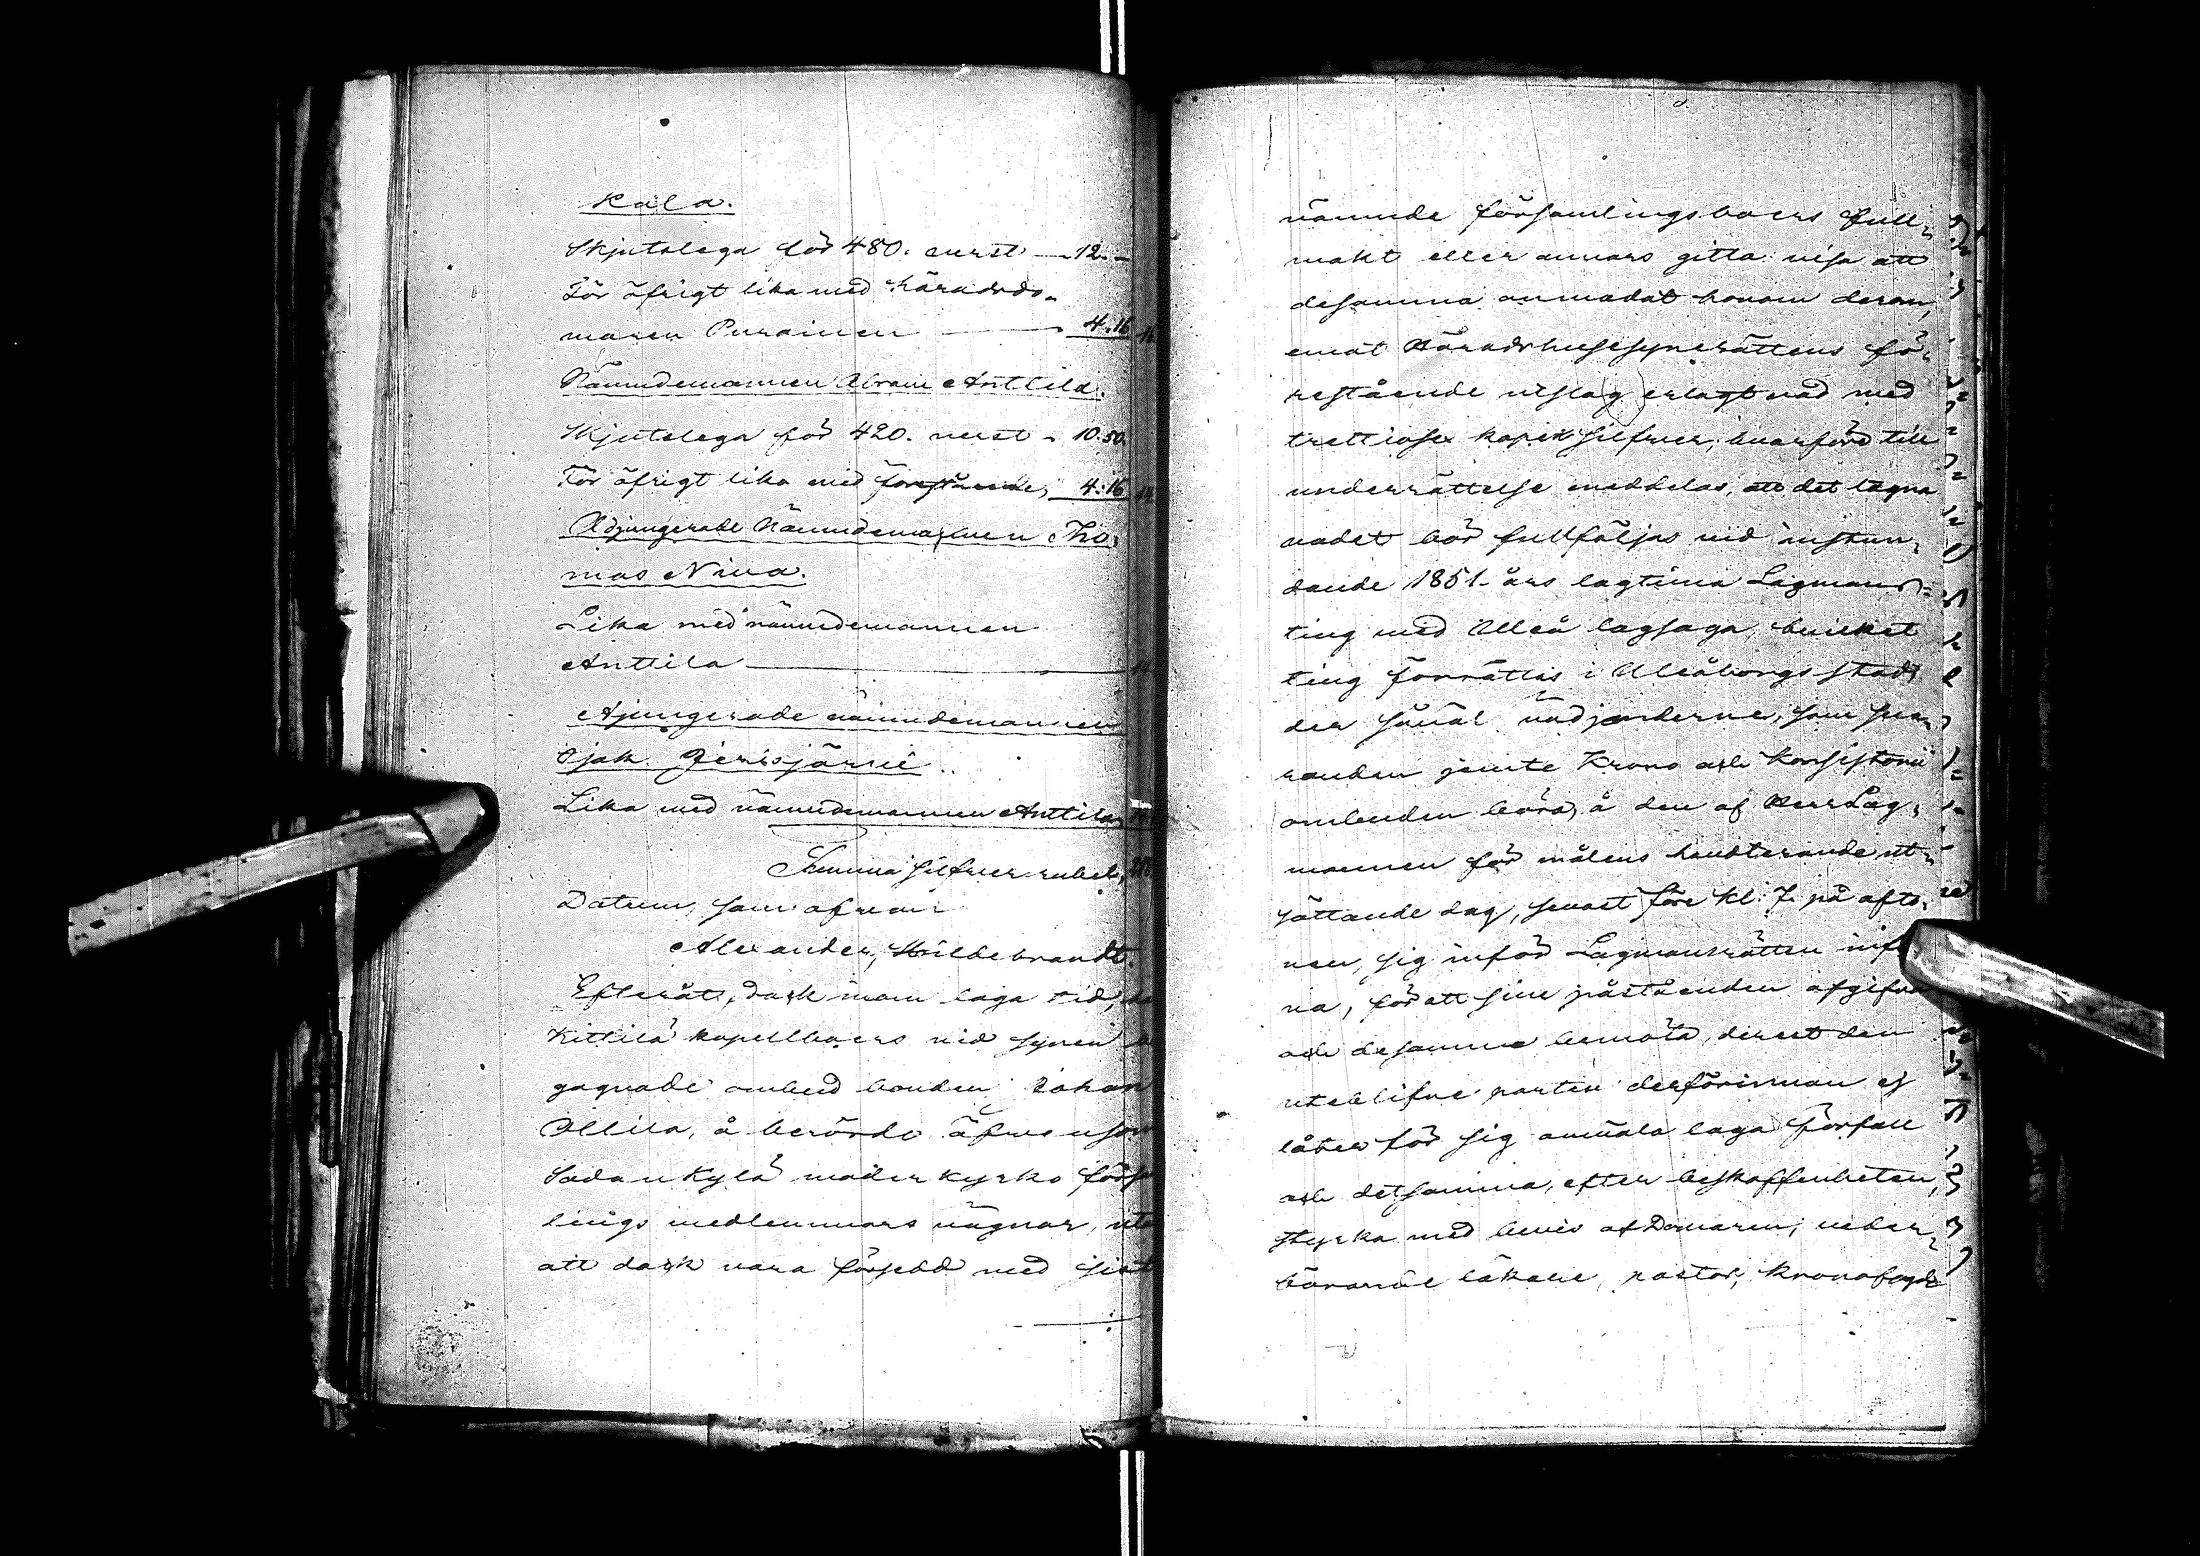 Kala.
Skjutslega för 480. verst — 12. —
För öfrigt lika med häradsdo-
maren Purainen — 4.16 16
Nämndemannen Abram Anttila.
Skjutslega för 420. verst - 10.50.
För öfrigt lika med förestående, 4.16 14
Adjungerade Nämndemannen Tho-
mas Niva.
Lika med nämndemannen
Anttila — 14
Ajungerade nämndemannen
Isak Jerisjärvi.
Lika med nämndemannen Anttila,
Summa silfver rubel,
Datum, som ofvan
Alexander, Hildebrandt.
Efteråt, dock inom laga tid,
Kittilä kapellboers vid synen
gagnade ombud bonden Johan
Ollila, å berörde äfvensom
Sodankylä moderkyrko förs
lings medlemmars vägnar, uta
att dock vara försedd med sist
nämnde församlingsboers full-
makt eller annars gitta visa att
desamma anmodat honom derom,
emot Häradshusesynerättens fö-
restående utslag erlagt vad med
trettiosex kopek silfver, hvarföre till
underrättelse meddelas, att det lagna
vadet bör fullföljas vid instun-
dande 1851. års lagtima Lagmans-
ting med Uleå lagsaga, hvilket
ting förrättas i Uleåborgs stad,
der såväl vädjanderne, som sva-
randen jemte Krono och Konsistorii
ombuden böra, å den af Herr Lag-
mannen för målens handterande ut-
sättande dag, senast före kl: 7. på afto-
nen, sig inför Lagmansrätten
na, för att sine påståenden afgifva
och desamma bemöta, derest den
uteblifne parten derförinnan ej
låter för sig anmäla laga förfall
och detsamma, efter beskaffenheten,
styrka med bevis af Domaren, veder-
börande läkare, pastor, kronofogde